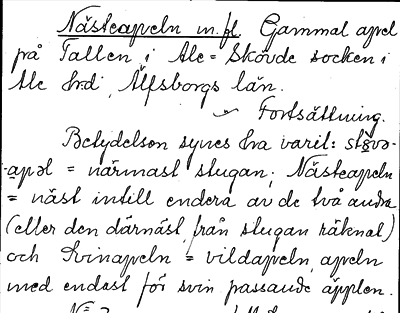 Näste apeln m.fl. Gammal apel
på Tallen i Ale-Skövde socken i
Ale hrd, Älfsborgs län.
Fortsättning.
Betydelsen synes ha varit: st8gv-
-apəl = närmast stugan; Näste apeln
= näst intill endera av de två andra
(eller den därnäst från stugan räknat)
och Svinapeln = vildapeln, apeln
med endast för svin passande äpplen.